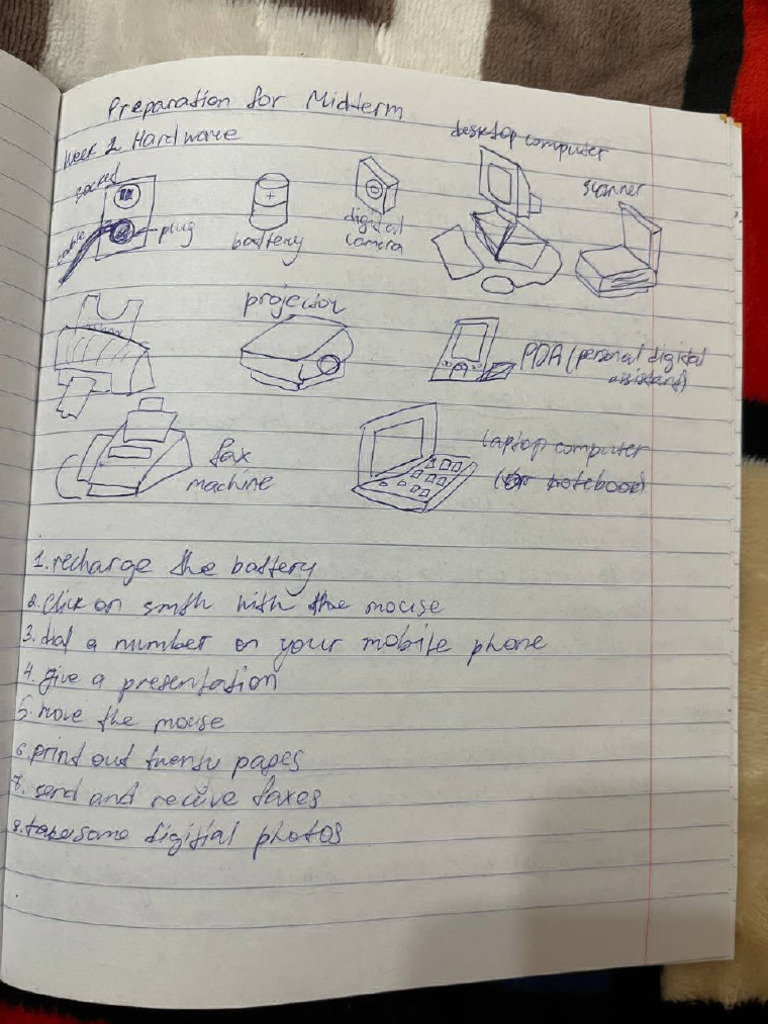 Preparation for Midterm
Week 2 Hardware
desktop computer
socket
scanner
cable
plug
battery
digital
camera
projector
PDA (personal digital
assistant)
fax
machine
laptop computer
(or notebook)
1. recharge the battery
2. click on smth with the mouse
3. dial a number on your mobile phone
4. give a presentation
5. move the mouse
6. print out twenty pages
7. send and receive faxes
8. take some digitial photos